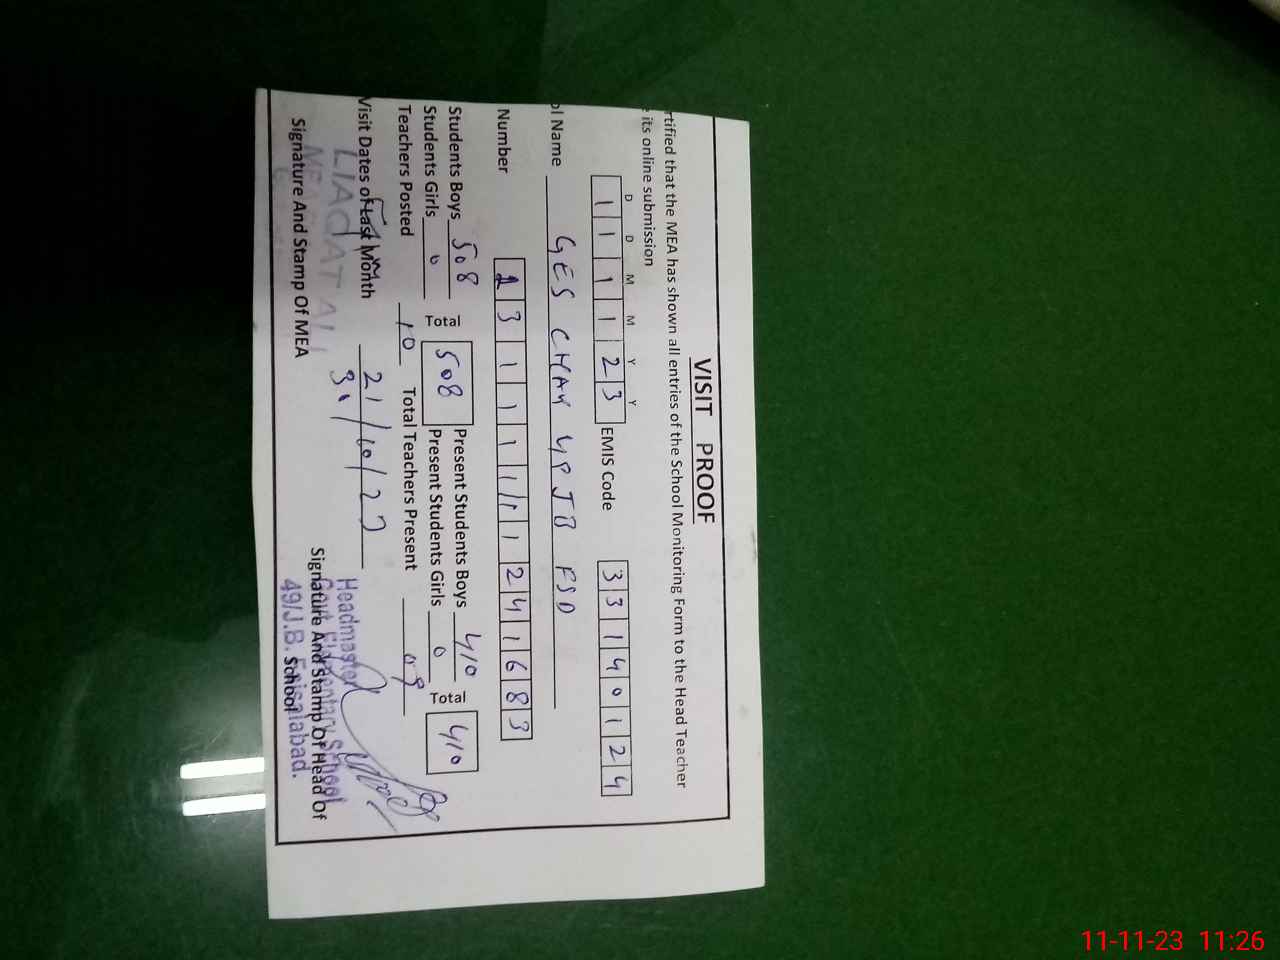 VISIT PROOF
rtified that the MEA has shown all entries of the School Monitoring Form to the Head Teacher
its online submission
D D M M Y Y
1 1 1 1 2 3 EMIS Code 3 3 1 4 0 1 2 4
ol Name GES CHAK 49 JB FSD
Number 1 3 1 1 1 1 1 1 2 4 1 6 8 3
Students Boys 508 Total 508 Present Students Boys 410 Total 410
Students Girls 0 Present Students Girls 0
Teachers Posted 10 Total Teachers Present 09
Visit Dates of Last Month 21/10/23
LIAQAT ALI
MEA
Signature And Stamp Of MEA
Headmaster
Govt. Elementary School
49/J.B. Faisalabad.
Signature And Stamp Of Head Of
School
11-11-23 11:26